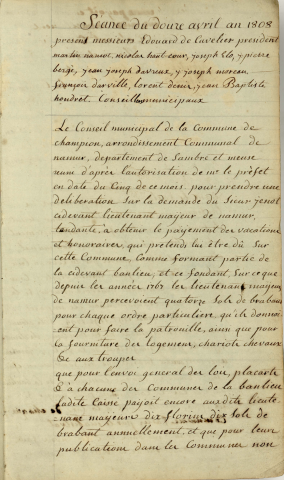 Séance du douze avril an 1808
présens messieurs Edouard de Cuvelier, president
martin namot, nicolas haut cour, joseph Elo, y pierre
berge, y jean joseph davreux, y joseph moreau,
françois darville, lorent denis, jean Baptiste
houdret Conseillers municipaux
Le Conseil municipal de la Commune de
champion, arrondissement Communal de
namur, departement de Sambre et meuse
reuni d'après l'autorisation de mr. le préfet
en date du Cinq de ce mois, pour prendre une
deliberation sur la demande du Sieur
cidevant lieutenant mayeur de namur,
tendante, à obtenir le payement des vacations
et honoraires, qui prétend lui être dû sur
cette Commune, comme formant partie de
la cidevant banlieu, et se fondant, sur ce que
depuis les années 1767 les lieutenant mayeur
de namur percevoient quatorze sols de brabant
pour chaque ordre particuliere, qu'ils donnoi
ent pour faire la patrouille, ainsi que pour
la fourniture des logemens, chariots chevaux
&c aux troupes
que pour l'envoi general des loix, placarts
&c à chacune des Communes de la banlieu
ladite Caisse payoit encore aux dits lieute
nans mayeurs dix florins dix sols de
brabant annuellement, et que pour leur
publication dans les Communes non